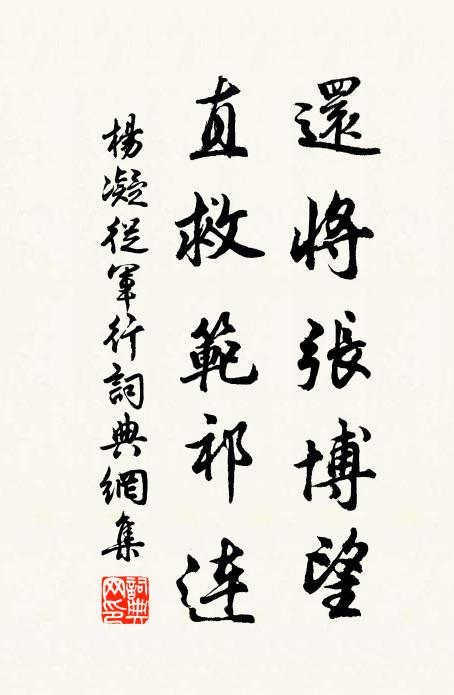 還將張博望
直救範祁连
楊凝從軍行詞典網集
詞典网印